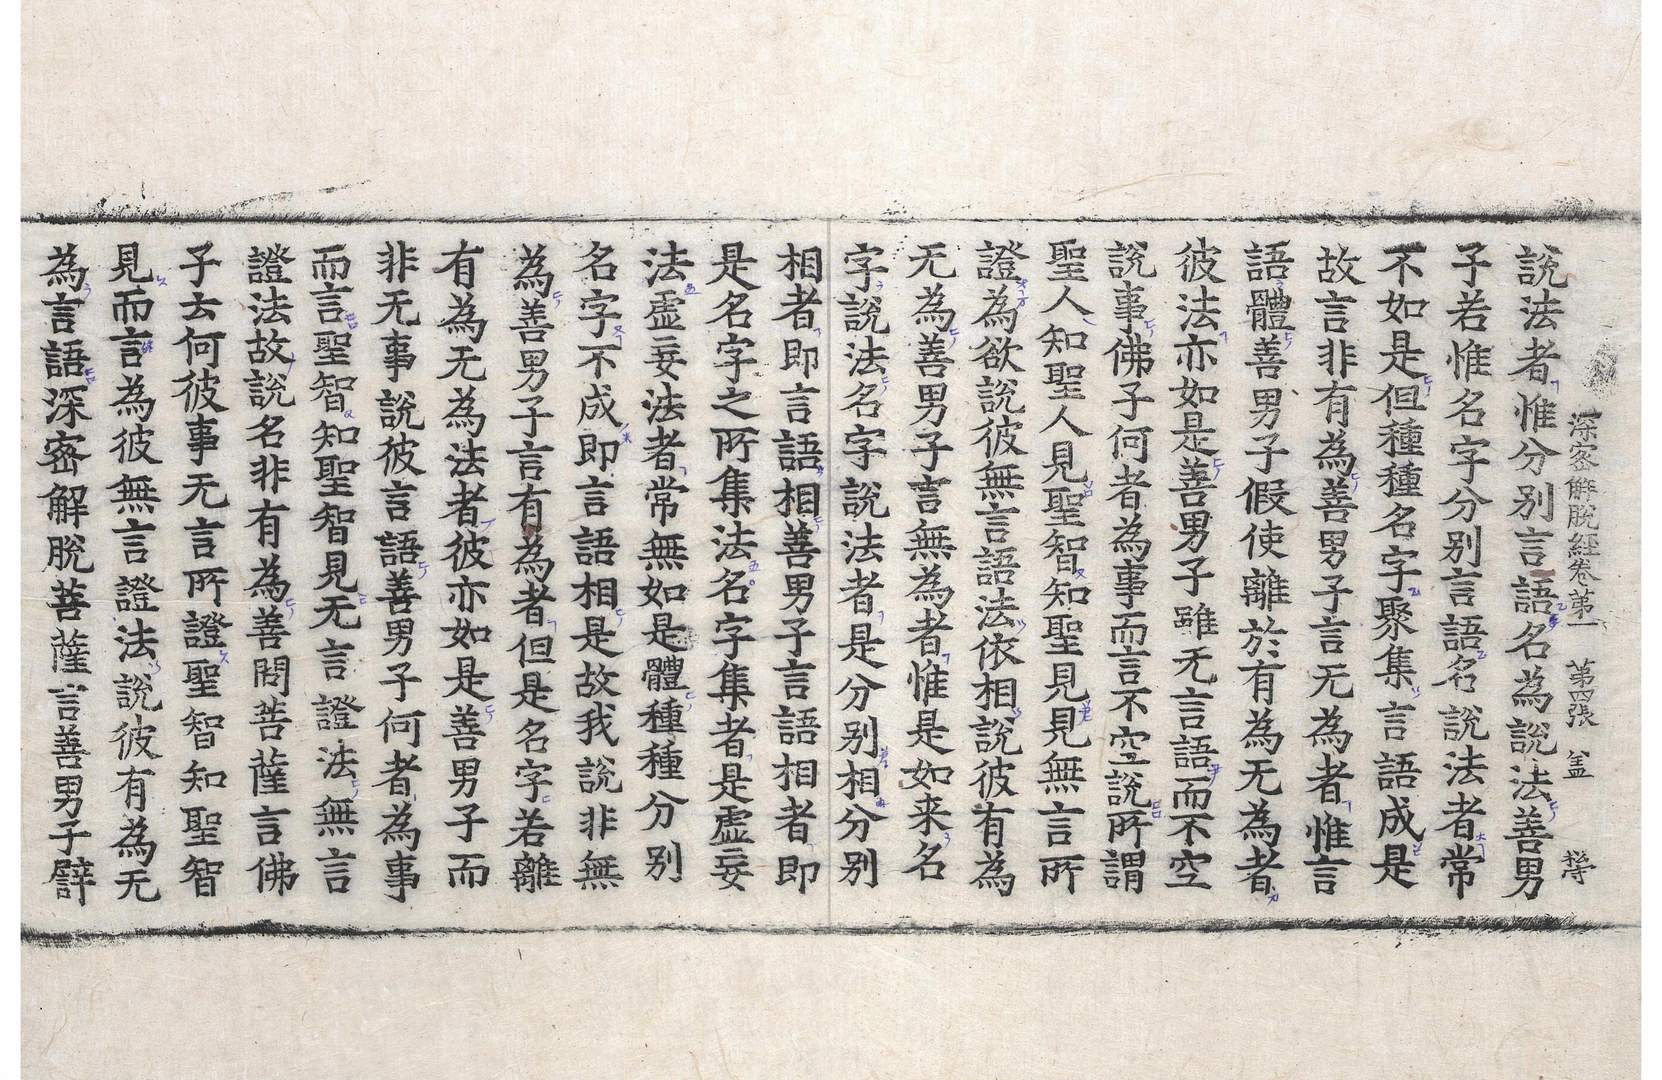 深密解脫經卷第一 第四張 盖
說法者惟分别言語名為說法善男
子若惟名字分别言語名說法者常
不如是但種種名字聚集言語成是
故言非有為善男子言无為者惟言
語體善男子假使離於有為无為者
彼法亦如是善男子雖无言語而不空
說事佛子何者為事而言不空說所謂
聖人知聖人見聖智知聖見見無言所
證為欲說彼無言語法依相說彼有為
无為善男子言無為者惟是如来名
字說法名字說法者是分别相分别
相者即言語相善男子言語相者即
是名字之所集法名字集者是虛妄
法虛妄法者常無如是體種種分别
名字不成即言語相是故我說非無
為善男子言有為者但是名字若離
有為无為法者彼亦如是善男子而
非无事說彼言語善男子何者為事
而言聖智知聖智見无言證法無言
證法故說名非有為善問菩薩言佛
子云何彼事无言所證聖智知聖智
見而言為彼無言證法說彼有為无
為言語深密解脫菩薩言善男子譬